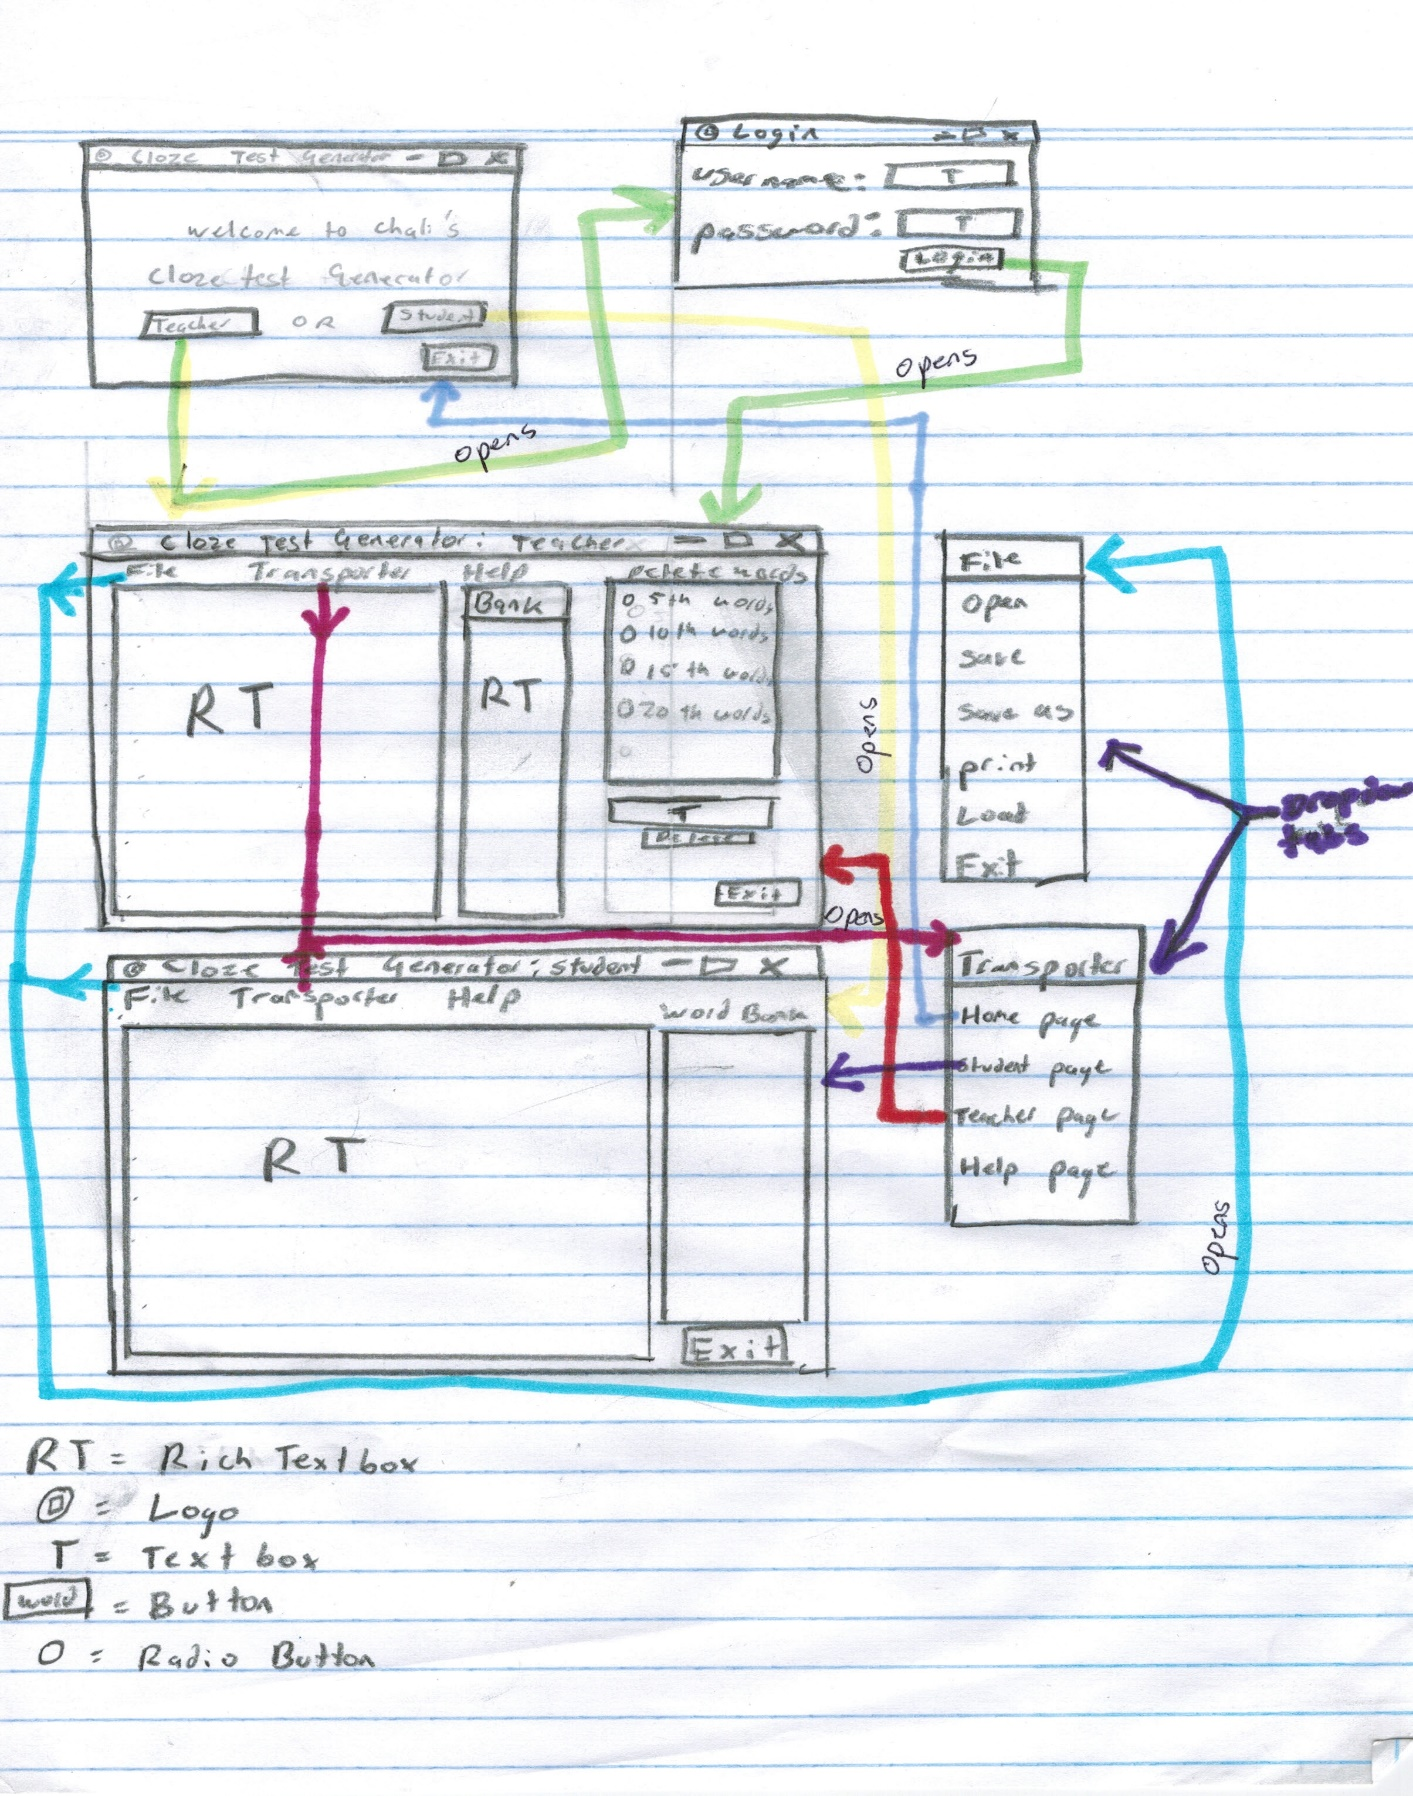 Cloze Test Generator
welcome to chali's
Cloze test Generator
Teacher OR Student
Exit
Login
username: T
password: T
Login
opens
opens
Cloze Test Generator: Teacher
File Transporter Help Delete words
Bank
RT
RT
O 5th words
O 10th words
O 15th words
O 20th words
T
Exit
opens
opens
File
open
save
save as
print
Load
Exit
Cloze Test Generator: student
File Transporter Help
word Bank
RT
Exit
Transporter
Home page
Student page
Teacher page
Help page
opens
RT = Rich Textbox
= Logo
T = Text box
word = Button
O = Radio Button